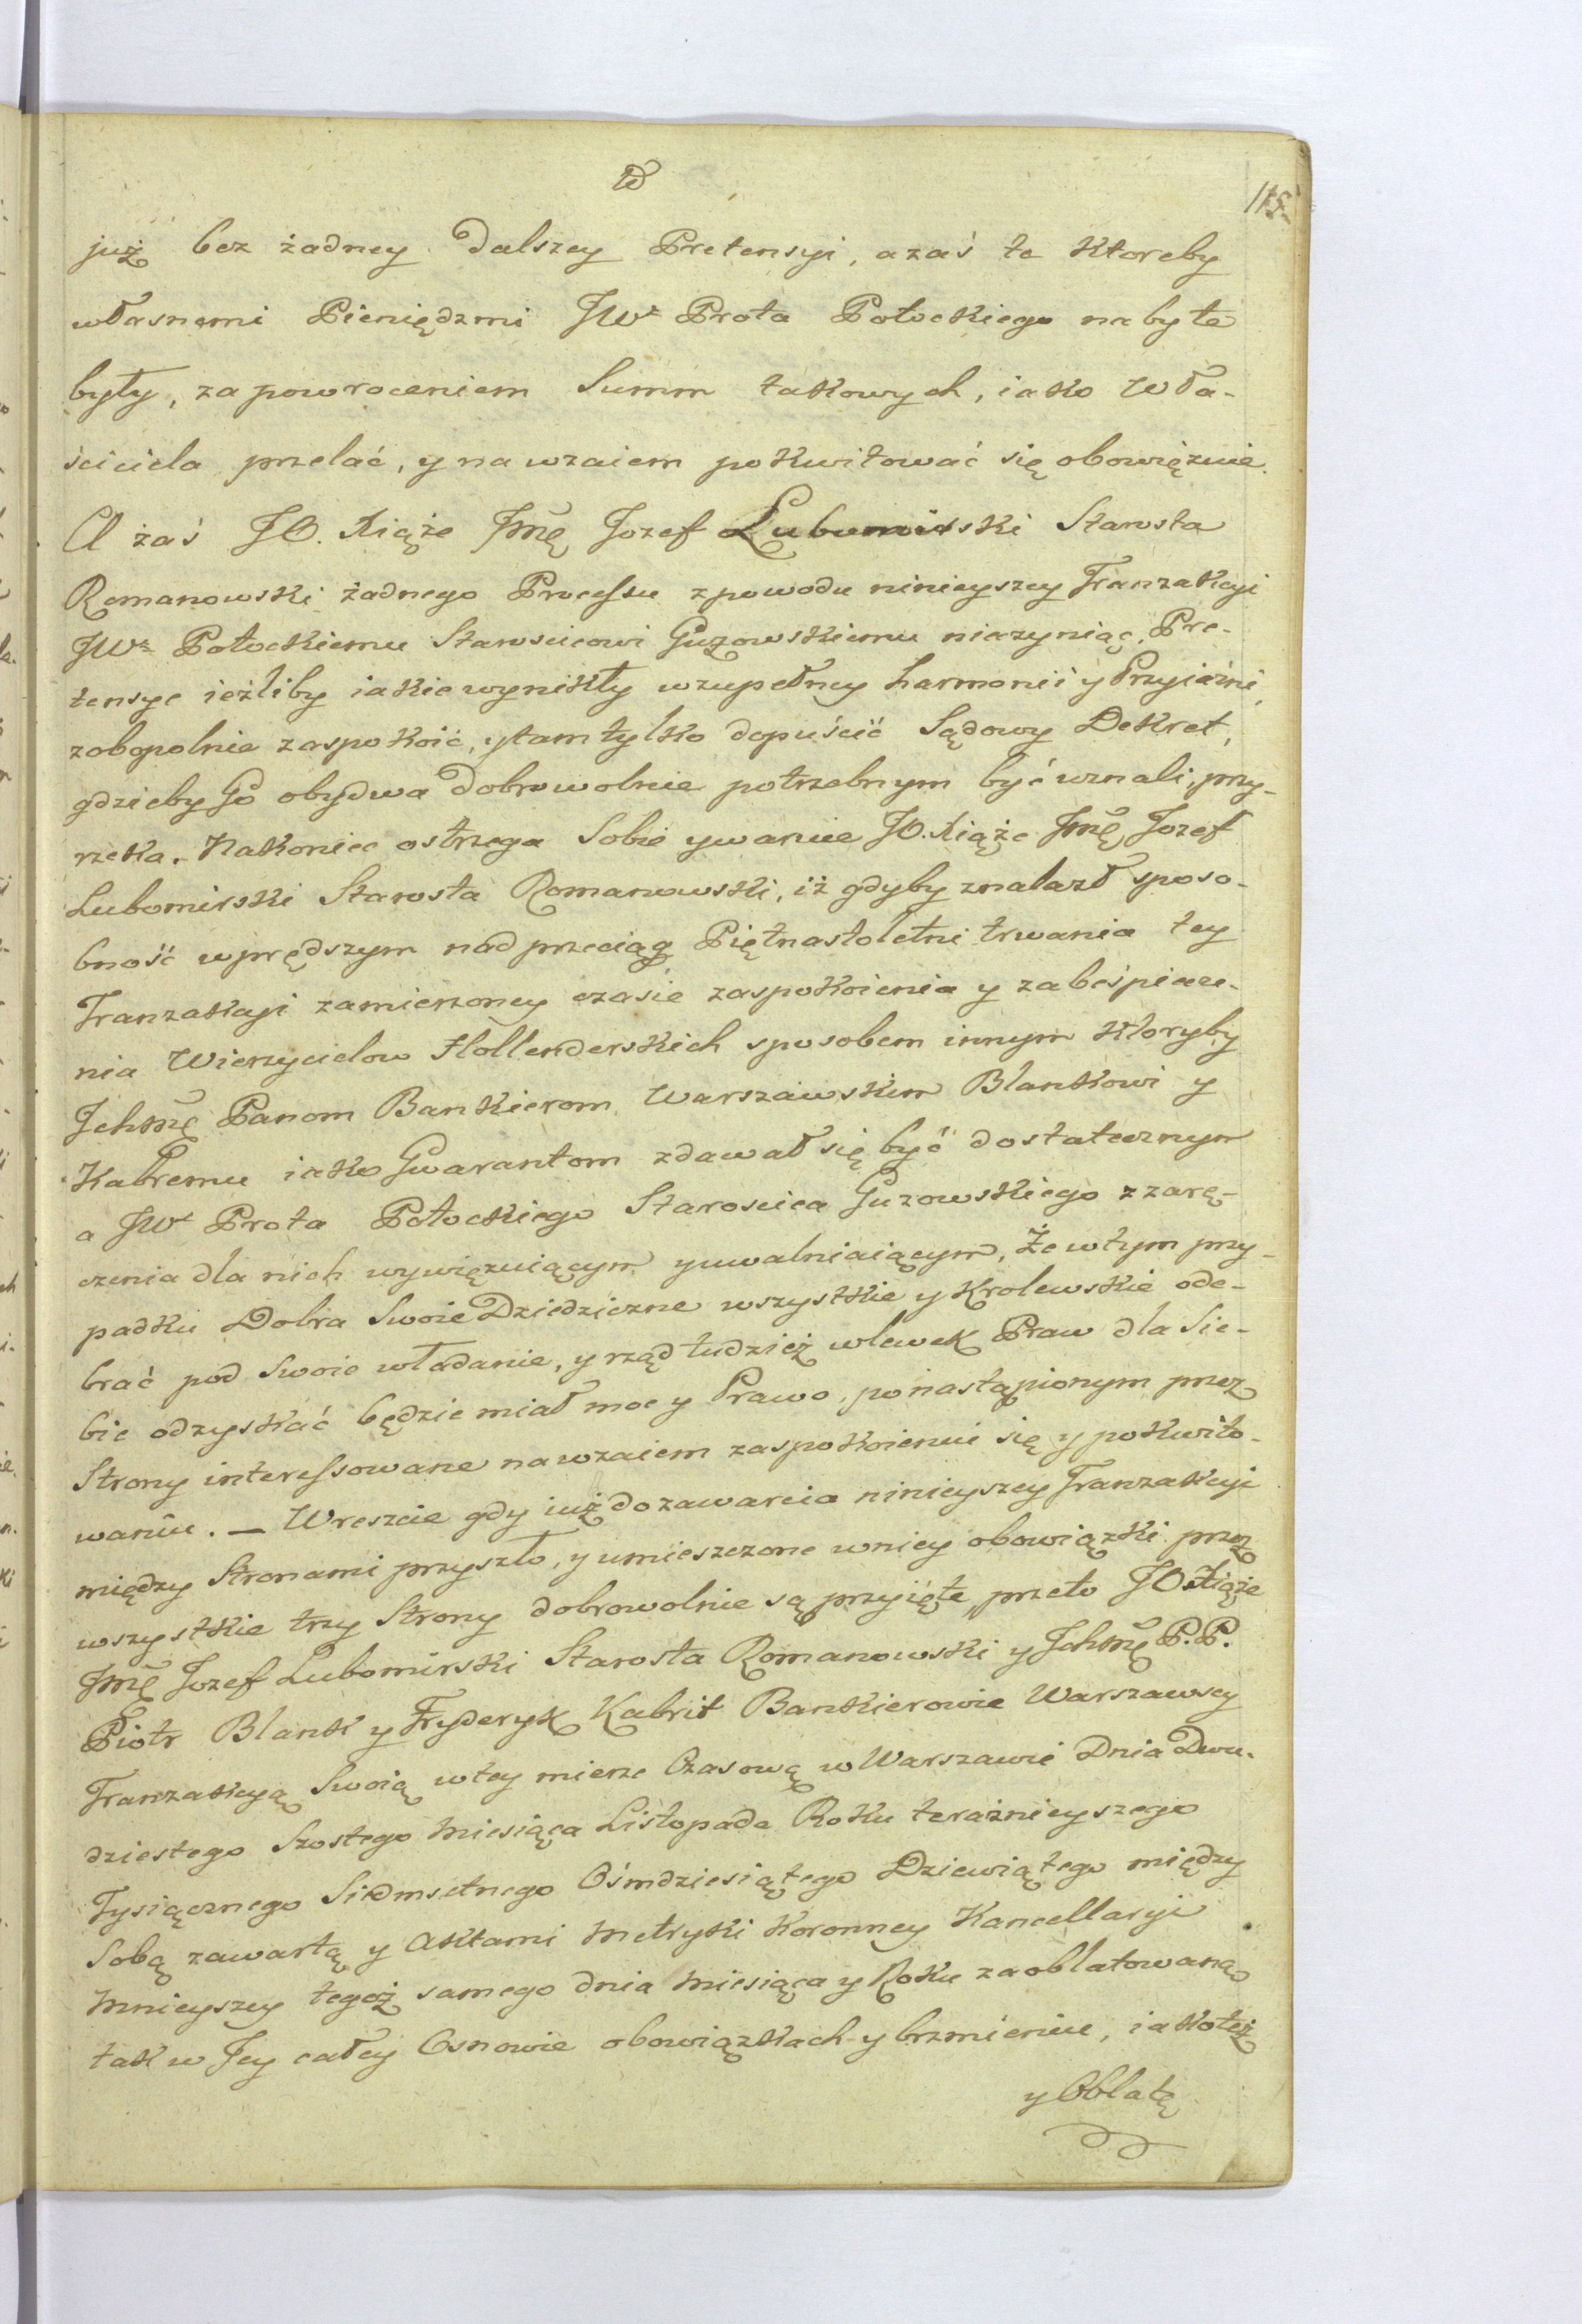 115.
już bez żadney dalszey Pretensyi, a zaś te ktoreby
własnemi Pieniędzmi JWo Prota Potockiego nabyte
były, za powroceniem Summ takowych, iako Wła-
ściciela przelać, y na wzaiem pokwitować się obowięzuie.
A zaś JO. Xiąże Jmę Jozef Lubomirski Starosta
Romanowski żadnego Processu z powodu ninieyszey Tranzakcyi
JWu Potockiemu Starościcowi Guzowskiemu nieczyniąc, Pre-
tensye ieżliby iakie wynikły w zupełney harmonii y Przyiaźni,
zobopolnie zaspokoić, y tam tylko dopuścić Sądowy Dekret,
gdzieby Go obydwa dobrowolnie potrzebnym być uznali, przy-
rzeka. Nakoniec ostrzega Sobie y waruie JO. Xiąże Jmę Jozef
Lubomirski Starosta Romanowski, iż gdyby znalazł sposo-
bność w prędszym nad przeciąg Piętnastoletni trwania tey
Tranzakcyi zamierzoney czasie zaspokoienia y zabeśpiecze-
nia Wierzycielow Hollenderskich sposobem innym ktoryby
Ichmę Panom Bankierom Warszawskim Blankowi y
Kabremu iako Gwarantom zdawał się być dostatecznym
a JWo Prota Potockiego Starościca Guzowskiego z zarę-
czenia dla nich wywięzuiącym y uwalniaiącym, Że w tym przy-
padku Dobra Swoie Dziedziczne wszystkie y Krolewskie ode-
brać pod Swoie władanie, y rząd tudzież wlewek Praw dla Sie-
bie odzyskać będzie miał moc y Prawo, po nastąpionym przez
Strony interessowane nawzaiem zaspokoieniu się y pokwito-
waniu. — Wreszcie gdy iuż do zawarcia ninieyszey Tranzakcyi
między Stronami przyszło, y umieszczone w niey obowiązki przez
wszystkie trzy Strony dobrowolnie są przyięte, przeto JO. Xiąże
Jmę Jozef Lubomirski Starosta Romanowski y Ichmę P.P.
Piotr Blank y Fryderyk Kabrit Bankierowie Warszawscy
Tranzakcyą Swoią w tey mierze Czasową w Warszawie Dnia Dwu-
dziestego Szostego Miesiąca Listopada Roku teraźnieyszego
Tysiącznego Siedmsetnego Ośmdziesiątego Dziewiątego między
Sobą zawartą y Aktami Metryki Koronney Kancellaryi
Mnieyszey tegoż samego dnia Miesiąca y Roku zaoblatowaną
tak w Jey całey Osnowie obowiązkach y brzmieniu, iakoteż
y Oblatę